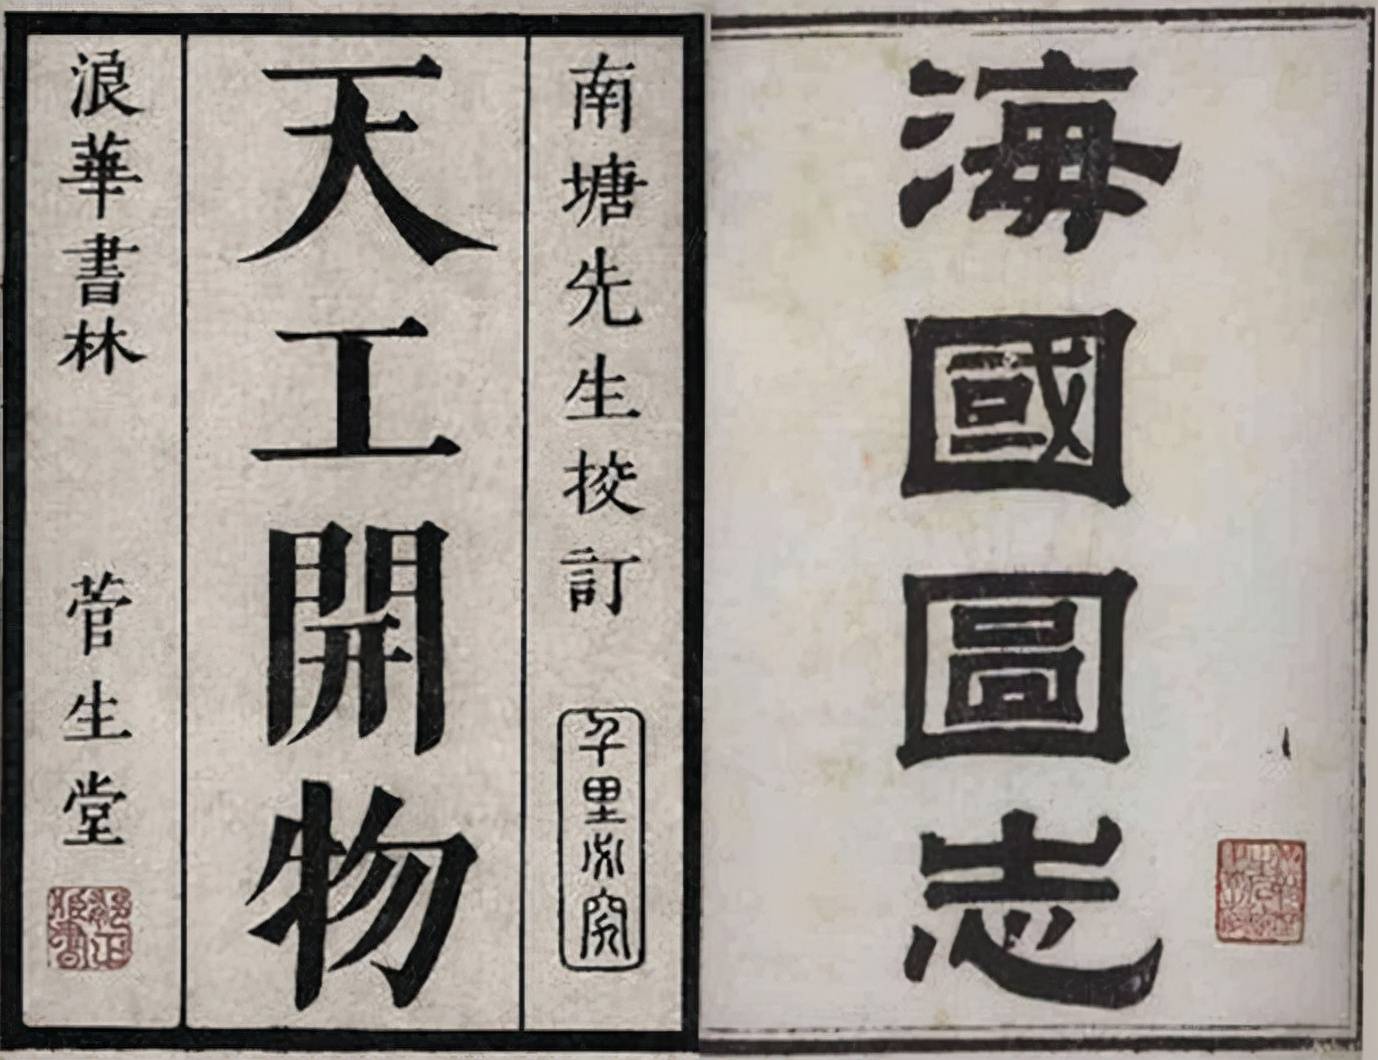 海國圖志
南塘先生挍訂
千里必究
天工開物
浪華書林 菅生堂